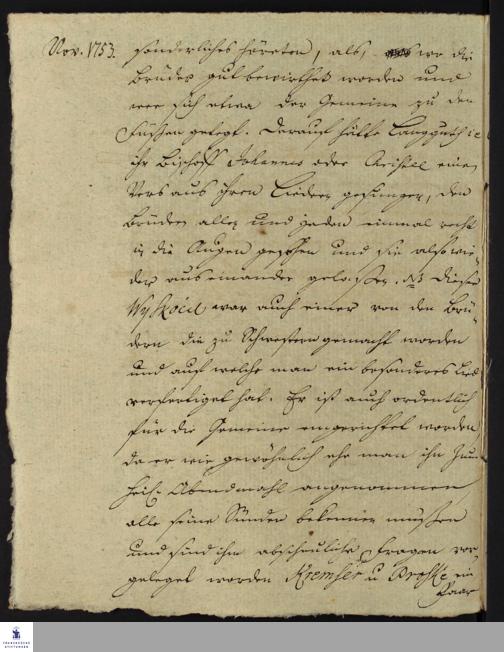 Nov. 1753. sonderliches höreten, als, wo die
Brüder gut bewirthet worden und
wer sich etwa der Gemeine zu den
Füßen gelegt. Darauf hätte Langguth ie
ihr Bischoff Johannes oder einen
Vers aus ihren Liedern gesungen, den
Brüdern allen und jeden einmal recht
in die Augen gesehen und sie also wie-
der auseinander gelassen. NB dieser
Wyskočil war auch einer von den Brü-
dern die zu Schwestern gemacht worden
und auf welche man ein besonderes Lied
verfertiget hat. Er ist auch ordentlich
für die Gemeine eingerichtet worden
da er wie gewöhnlich ehe man ihn zum
heil. Abendmahl angenommen
alle seine Sünden bekennen müssen
und sind ihm abscheuliche Fragen vor
gelegt worden Kremser u ein
Paar
FRANCKESCHE
STIFTUNGEN